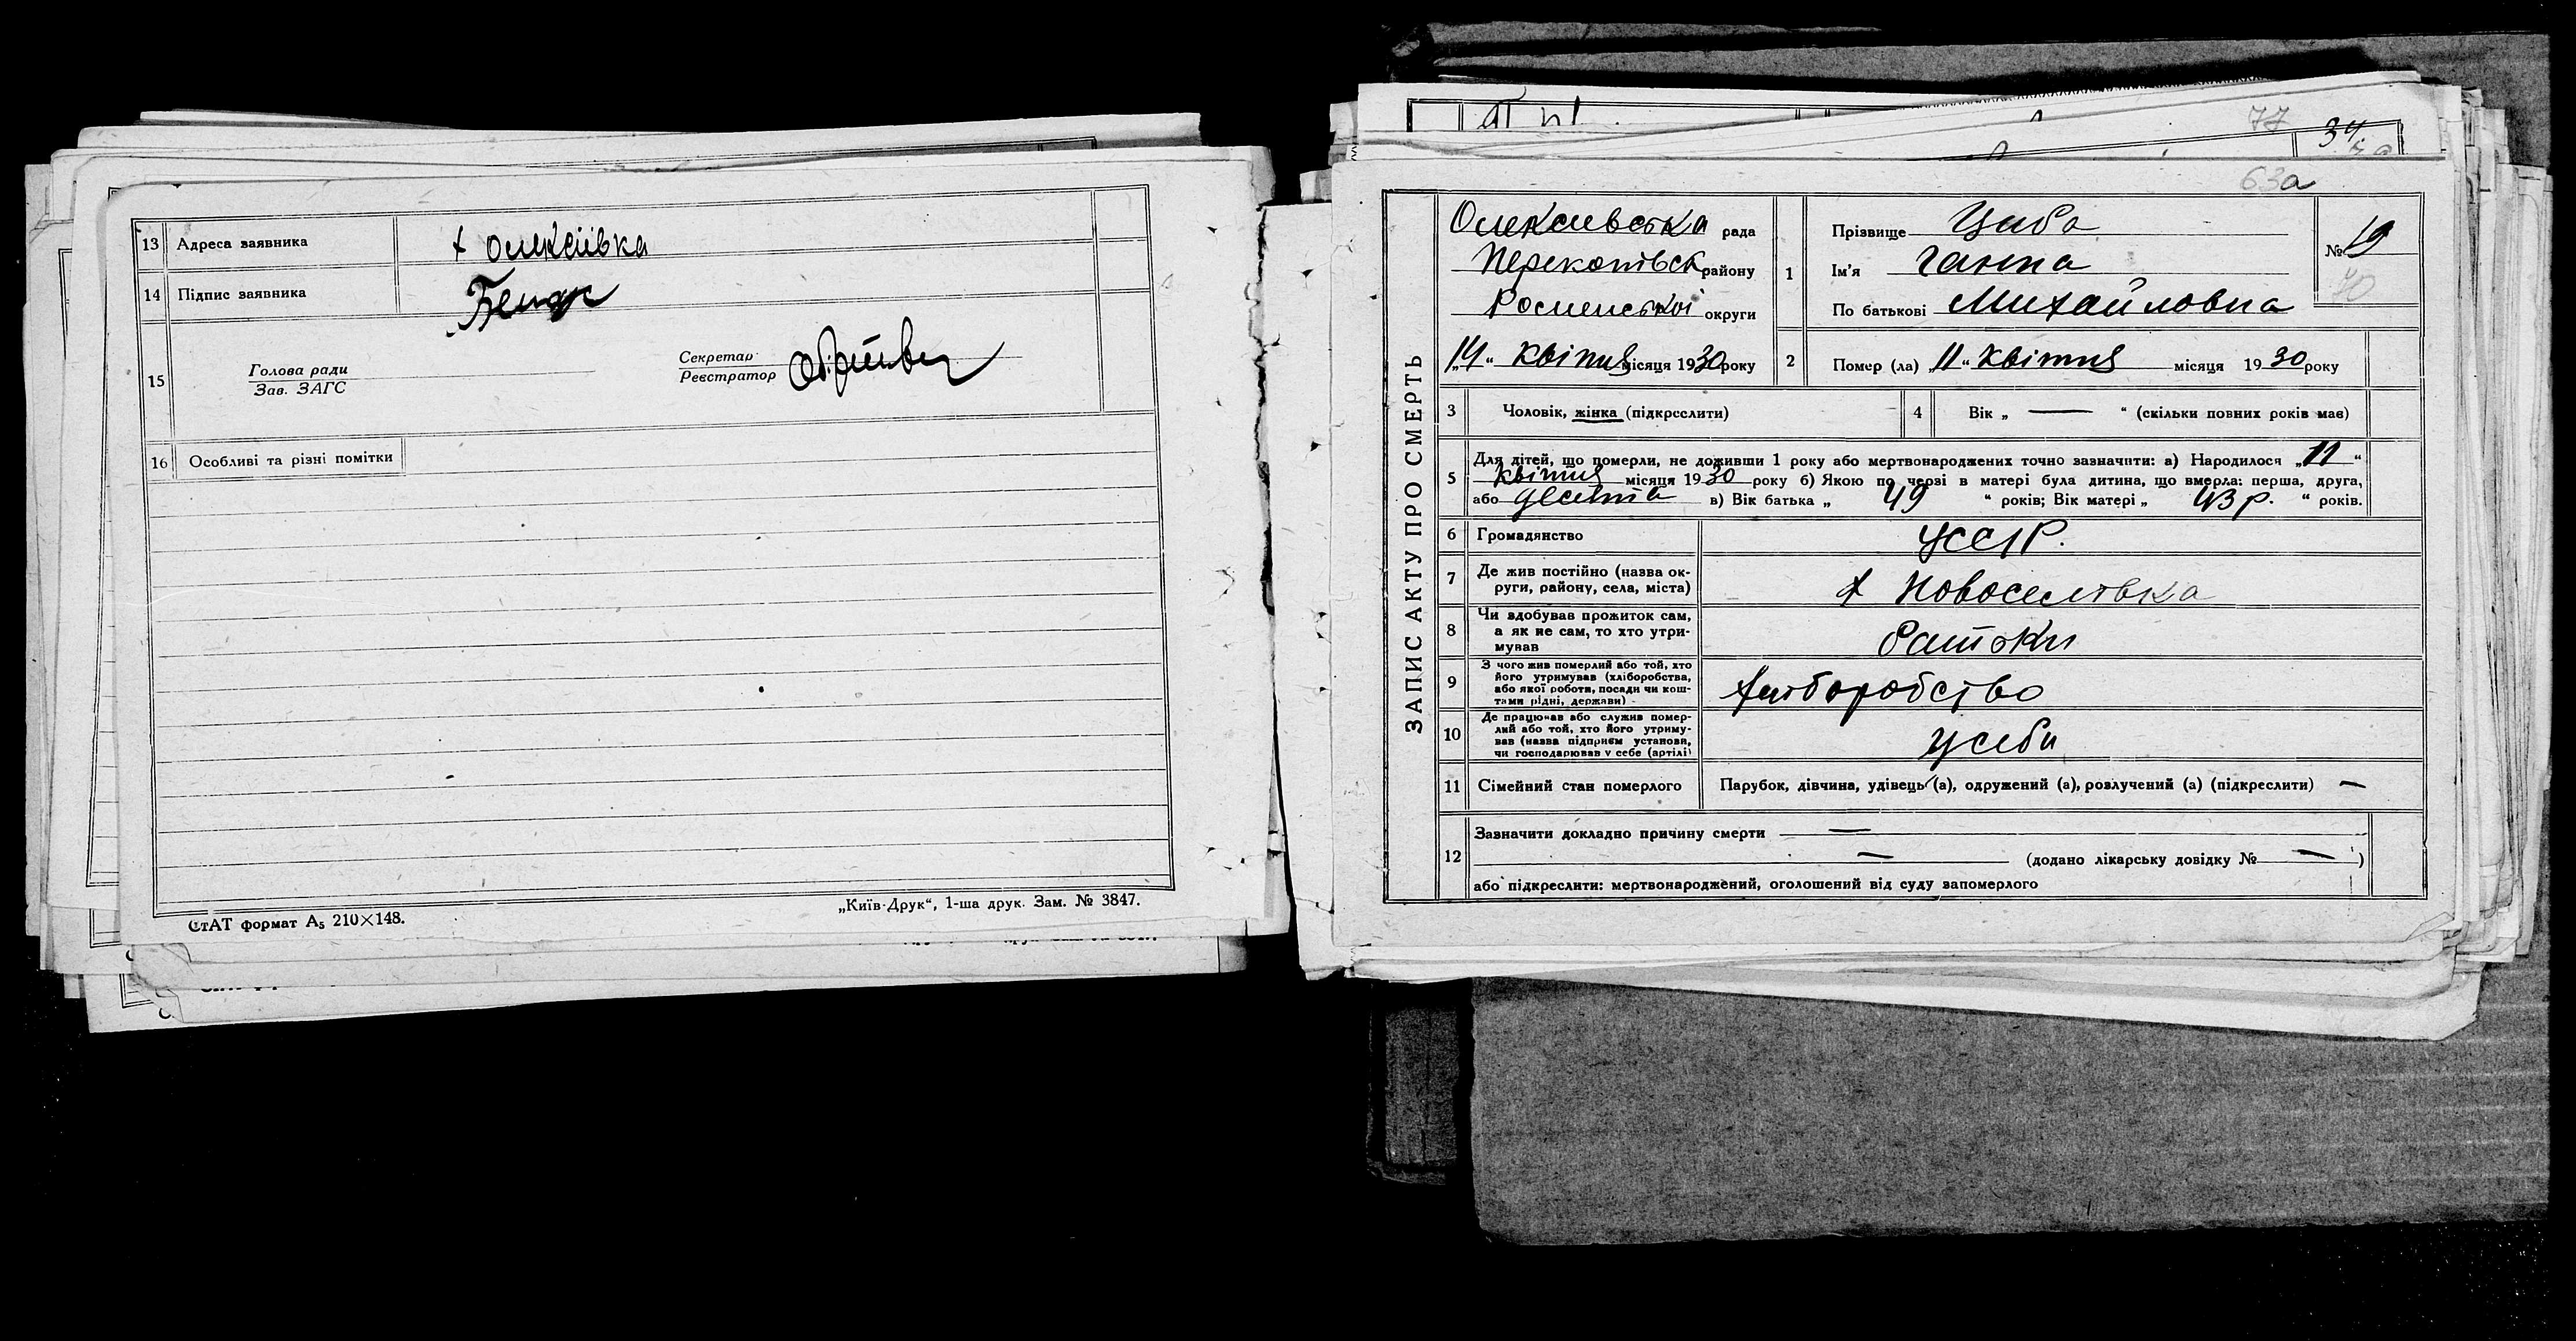 13 Адреса заявника х Олексіївка
14 Підпис заявника
15 Голова ради
Зав. ЗАГС
Секретар
Реєстратор
16 Особливі та різні помітки
СтАТ формат А5 210×148.
„Київ-Друк“, 1-ша друк. Зам. № 3847.
77
34
63а
ЗАПИС АКТУ ПРО СМЕРТЬ
Олексіевська рада
Перекопівськ району
Роменської округи
„14“ квітня місяця 1930 року
1 Прізвище Циба
Ім'я Ганна
По батькові Михайловна
№ 19
70
2 Помер (ла) „11“ квітня місяця 1930 року
3 Чоловік, жінка (підкреслити)
4 Вік „ — “ (скільки повних років мав)
5 Для дітей, що померли, не доживши 1 року або мертвонароджених точно зазначити: а) Народилося „11“
квітня місяця 1930 року б) Якою по черзі в матері була дитина, що вмерла: перша, друга,
або десята в) Вік батька „ 49 “ років; Вік матері „ 43 р. “ років.
6 Громадянство УССР.
7 Де жив постійно (назва ок-
руги, району, села, міста) х Новоселівка
8 Чи здобував прожиток сам,
а як не сам, то хто утри-
мував Батьки
9 З чого жив померлий або той, хто
його утримував (хліборобства,
або якої роботи, посади чи кош-
тами рідні, держави) Хліборобство
10 Де працював або служив помер-
лий або той, хто його утриму-
вав (назва підприєм установи,
чи господарював у себе (артілі) У себи
11 Сімейний стан померлого Парубок, дівчина, удівець (а), одружений (а), розлучений (а) (підкреслити) —
12 Зазначити докладно причину смерти —
— (додано лікарську довідку № — )
або підкреслити: мертвонароджений, оголошений від суду запомерлого